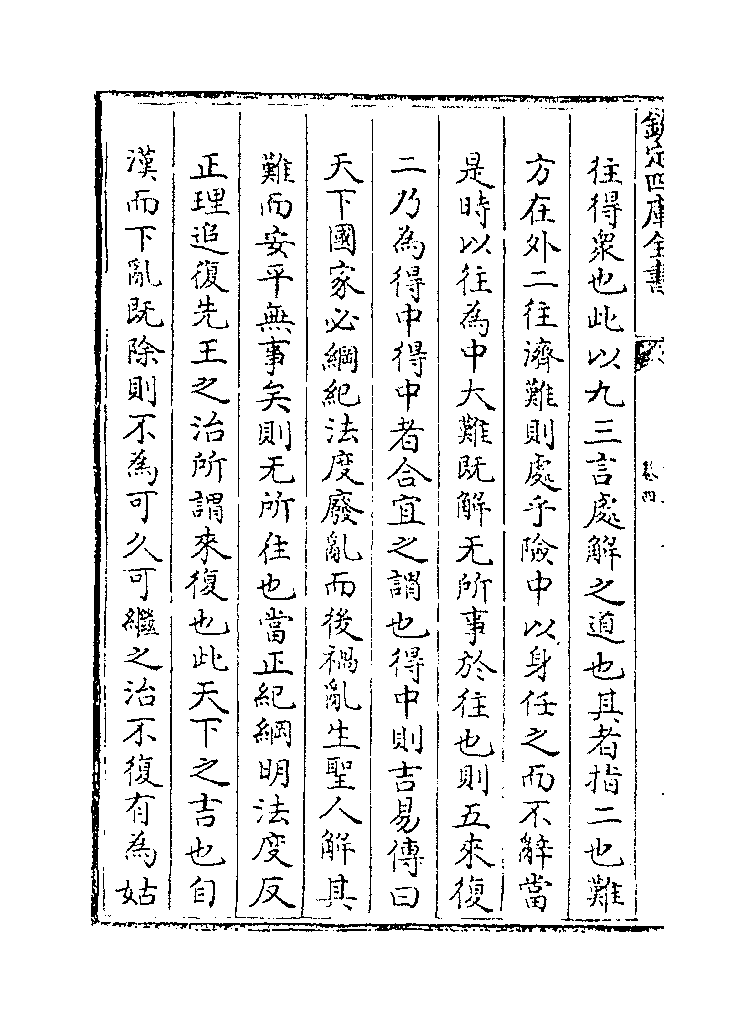 欽定四庫全書
卷四
往得衆也此以九三言處解之道也其者指二也難
方在外二往濟難則處乎險中以身任之而不辭當
是時以往為中大難既解无所事於往也則五來復
二乃為得中得中者合宜之謂也得中則吉易傳曰
天下國家必綱紀法度廢亂而後禍亂生聖人解其
難而安平無事矣則无所往也當正紀綱明法度反
正理追復先王之治所謂來復也此天下之吉也自
漢而下亂既除則不為可久可繼之治不復有為姑